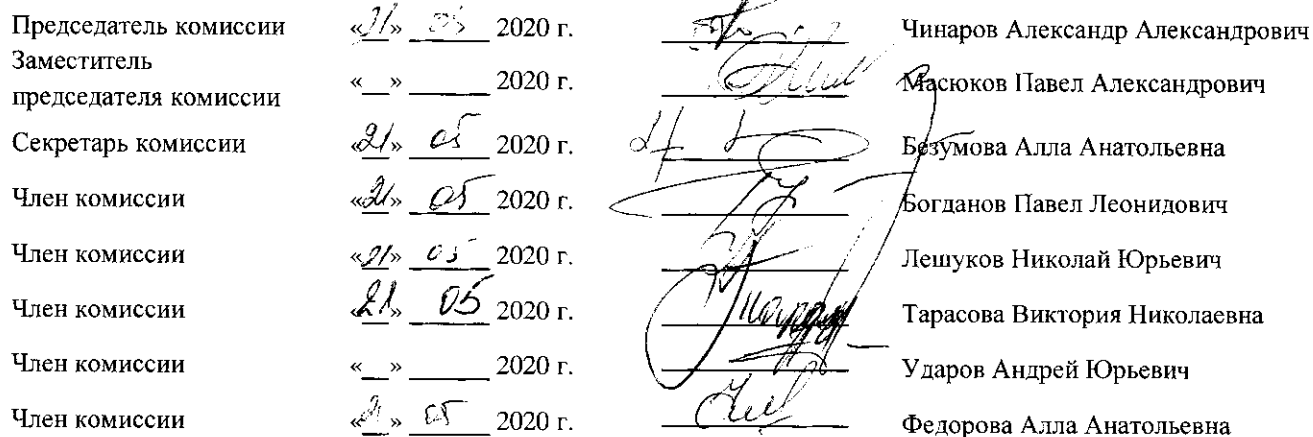 Председатель комиссии «21» 05 2020 г. Чинаров Александр Александрович
Заместитель
председателя комиссии «__» ______ 2020 г. Масюков Павел Александрович
Секретарь комиссии «21» 05 2020 г. Безумова Алла Анатольевна
Член комиссии «21» 05 2020 г. Богданов Павел Леонидович
Член комиссии «21» 05 2020 г. Лешуков Николай Юрьевич
Член комиссии 21» 05 2020 г. Тарасова Виктория Николаевна
Член комиссии «__» ______ 2020 г. Ударов Андрей Юрьевич
Член комиссии «21» 05 2020 г. Федорова Алла Анатольевна